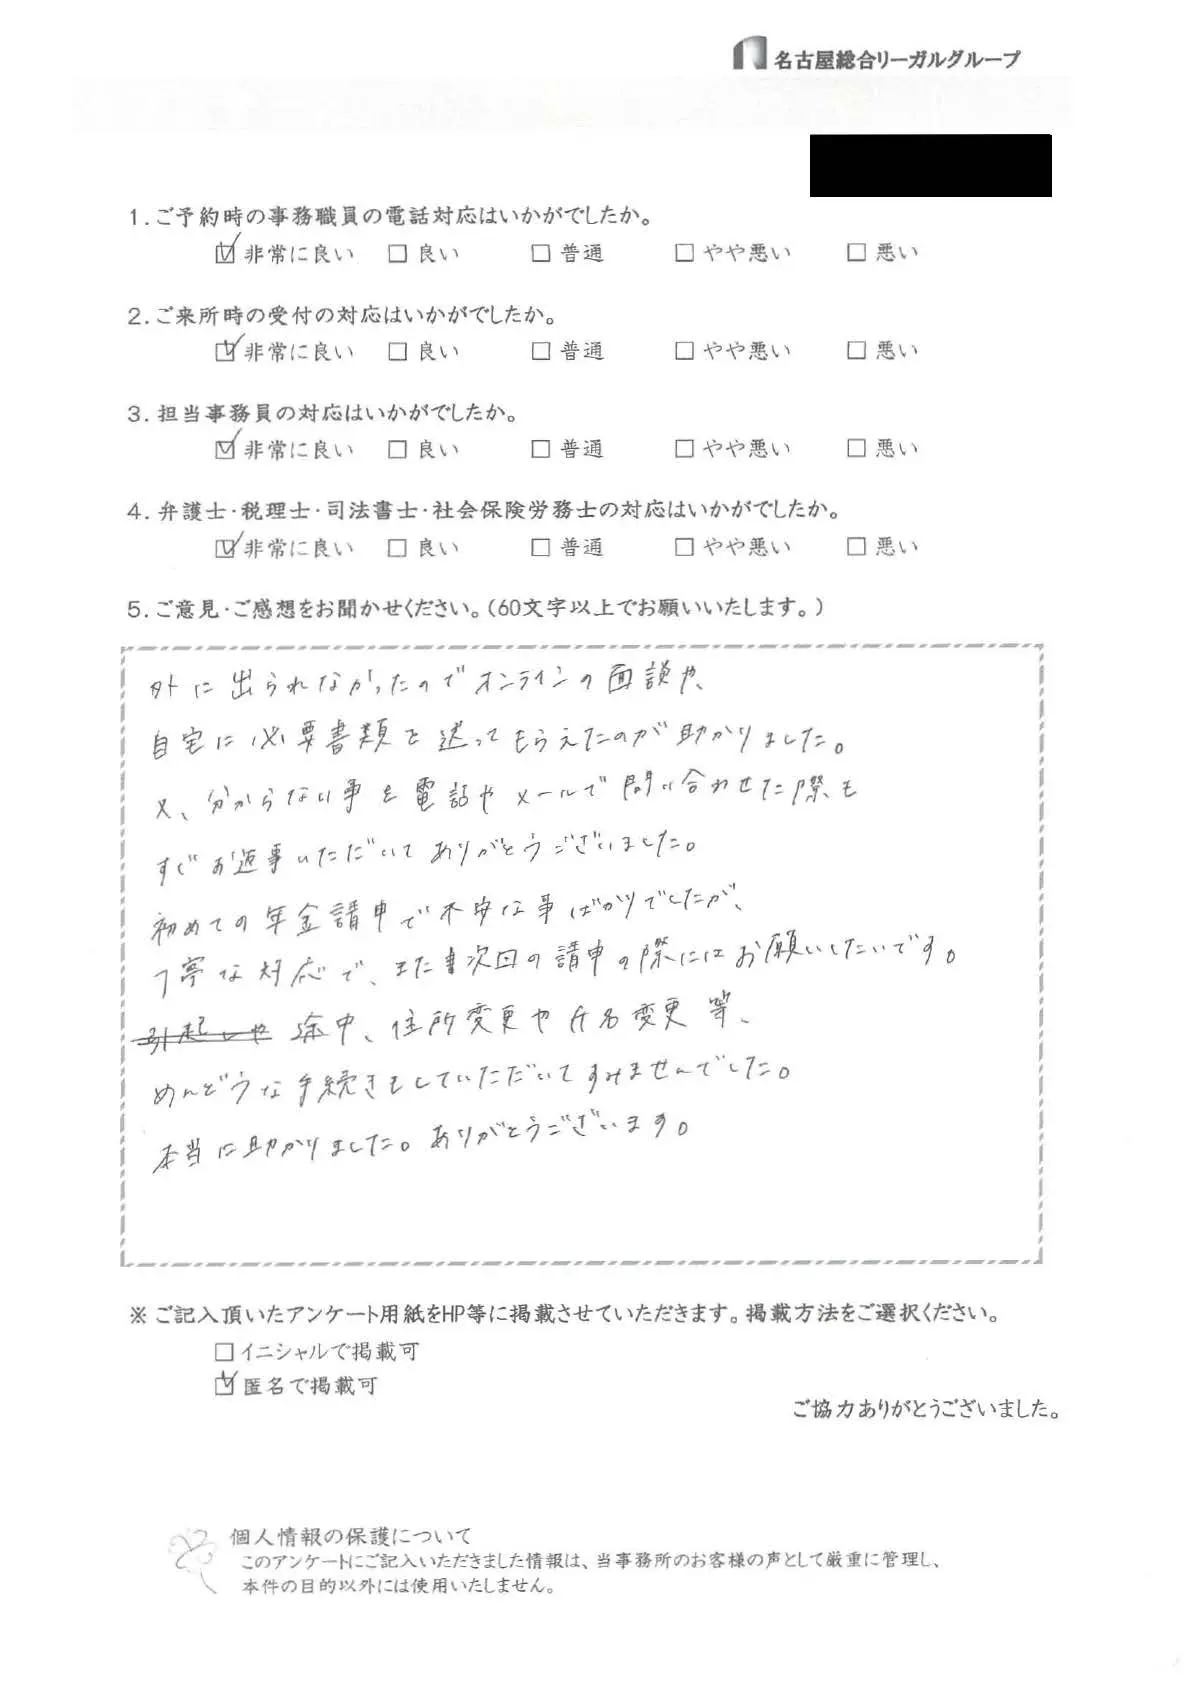 名古屋総合リーガルグループ
1.ご予約時の事務職員の電話対応はいかがでしたか。
☑非常に良い □良い □普通 □やや悪い □悪い
2.ご来所時の受付の対応はいかがでしたか。
☑非常に良い □良い □普通 □やや悪い □悪い
3.担当事務員の対応はいかがでしたか。
☑非常に良い □良い □普通 □やや悪い □悪い
4.弁護士・税理士・司法書士・社会保険労務士の対応はいかがでしたか。
☑非常に良い □良い □普通 □やや悪い □悪い
5.ご意見・ご感想をお聞かせください。(60文字以上でお願いいたします。)
外に出られなかったのでオンラインの面談や、
自宅に必要書類を送ってもらえたのが助かりました。
又、分からない事を電話やメールで問い合わせた際も
すぐお返事いただいてありがとうございました。
初めての年金請申で不安な事ばかりでしたが、
丁寧な対応で、また次回の請申の際にはお願いしたいです。
引起しや 途中、住所変更や氏名変更等、
めんどうな手続きもしていただいてすみませんでした。
本当に助かりました。ありがとうございます。
※ご記入頂いたアンケート用紙をHP等に掲載させていただきます。掲載方法をご選択ください。
□イニシャルで掲載可
☑匿名で掲載可
ご協力ありがとうございました。
個人情報の保護について
このアンケートにご記入いただきました情報は、当事務所のお客様の声として厳重に管理し、
本件の目的以外には使用いたしません。